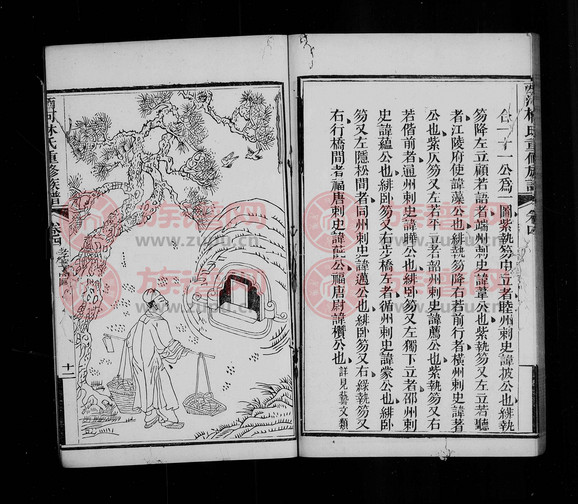 西河林氏重修族譜 卷四
合一十一公爲一圖紫執笏中立者睦州刺史諱披公也緋執
笏降左立顧若語者端州刺史諱葦公也紫執笏又左立若聽
者江陵府使諱藻公也緋執笏降右若前行者橫州刺史諱著
公也紫仄笏又左若右者韶州刺史諱薦公也紫執笏又右
若偕前者通州刺史諱曄公也緋卧笏又左獨下立者邵州刺
史諱蘊公也緋卧笏又右步橋左者循州刺史諱蒙公也緋卧
笏又左隱松間者同州刺史諱邁公也緋卧笏又右綠執笏又
右行橋間者福唐刺史諱公福唐尉諱欑公也 詳見藝文類
西河林氏重修族譜 卷四 圖 十二
族譜网
www.zupu.cn
族譜网
www.zupu.cn
族譜网
www.zupu.cn
族譜网
www.zupu.cn